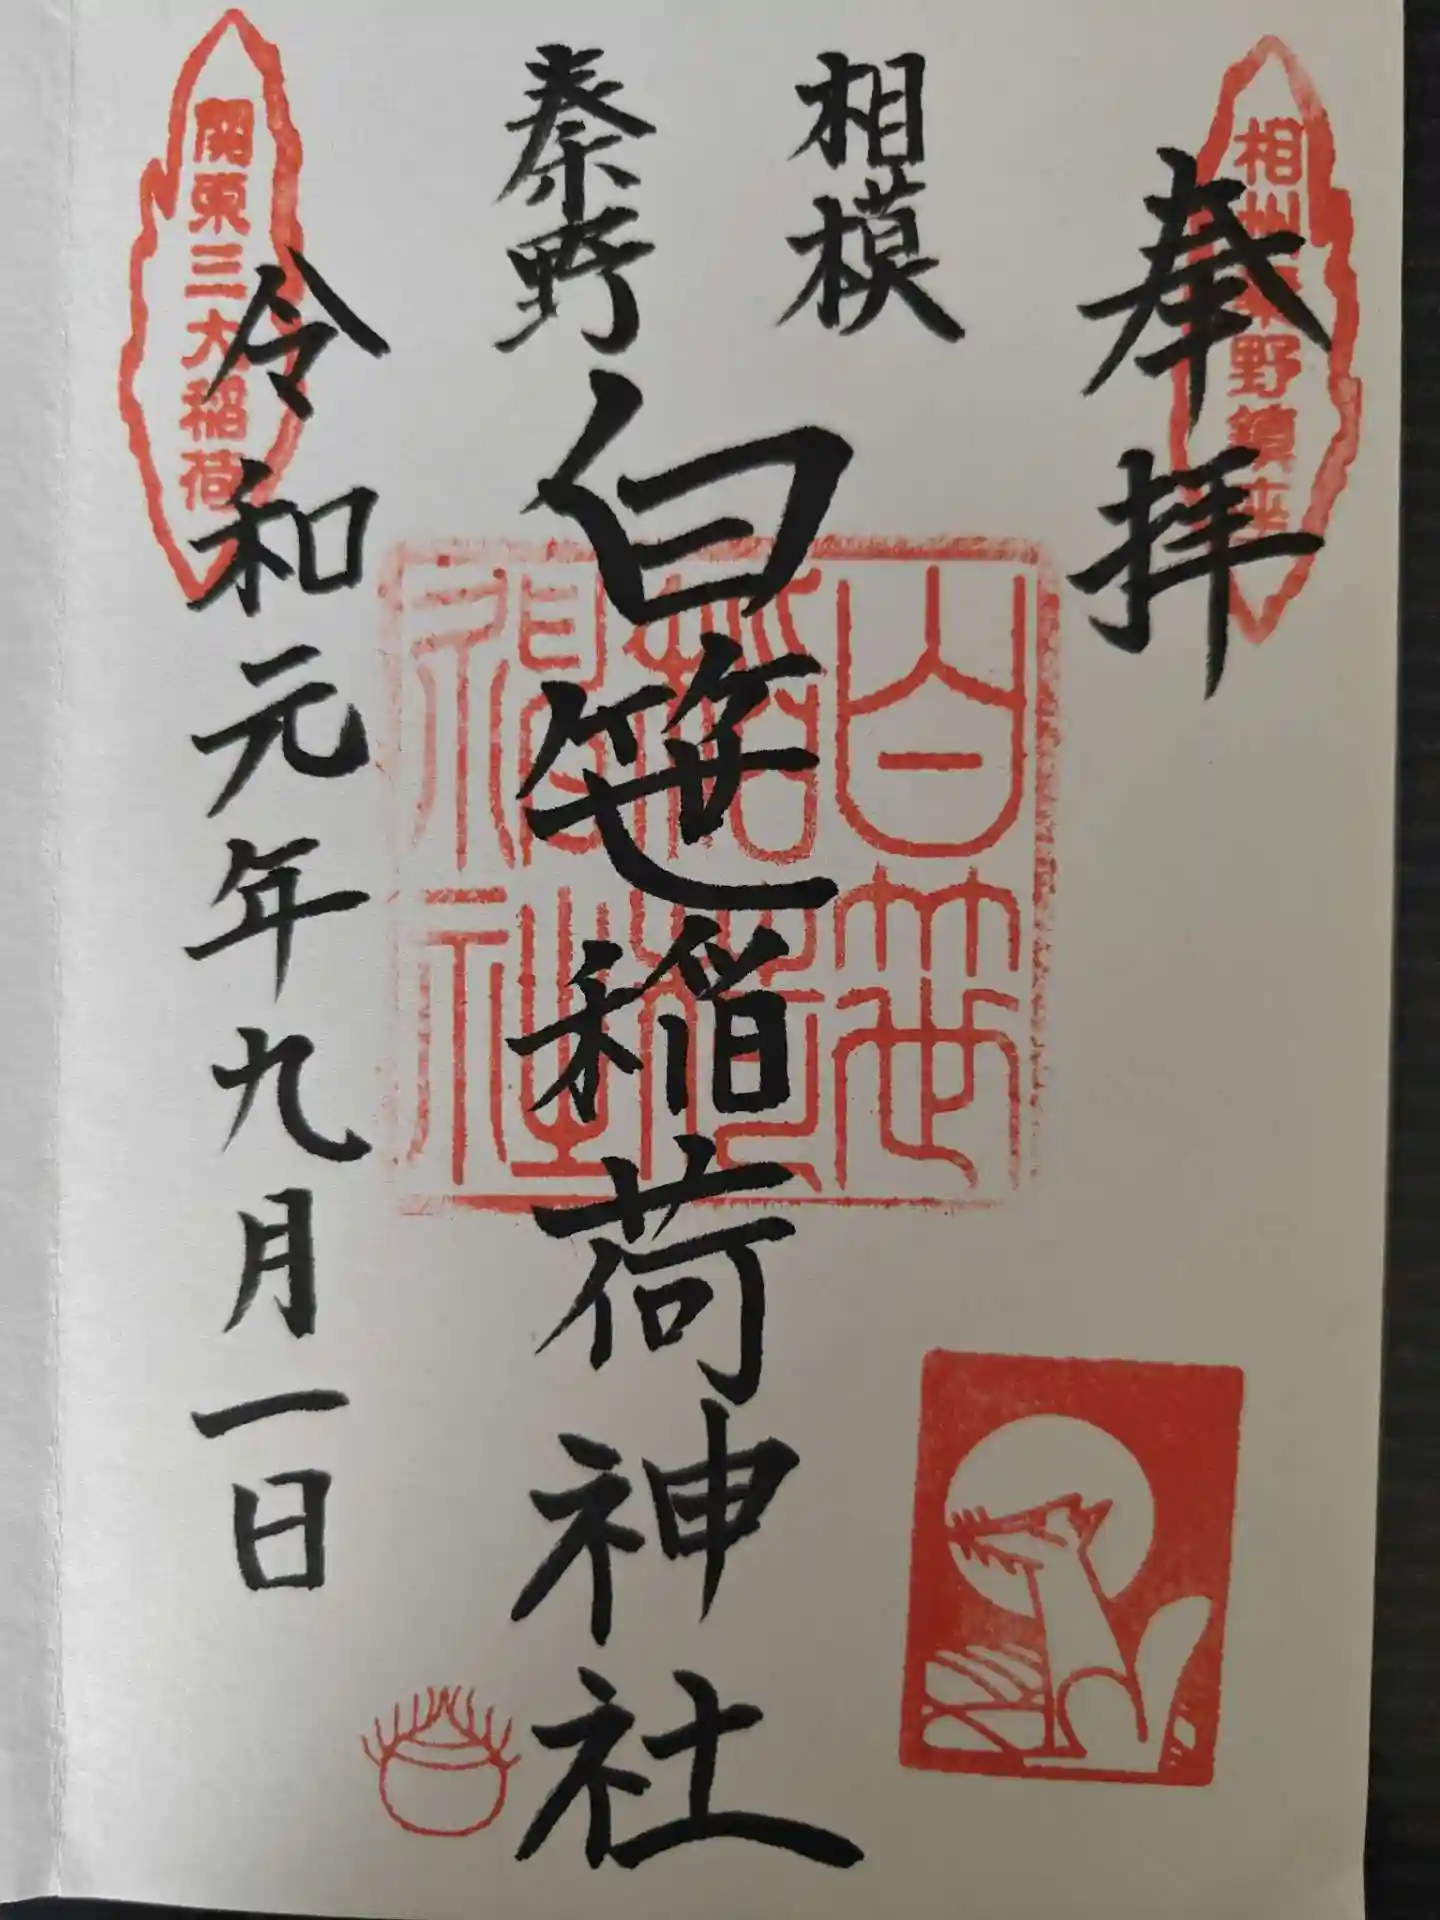 奉拝
相州秦野鎮座
相模
秦野
白笹稲荷神社
白笹稲荷神社
令和元年九月一日
関東三大稲荷